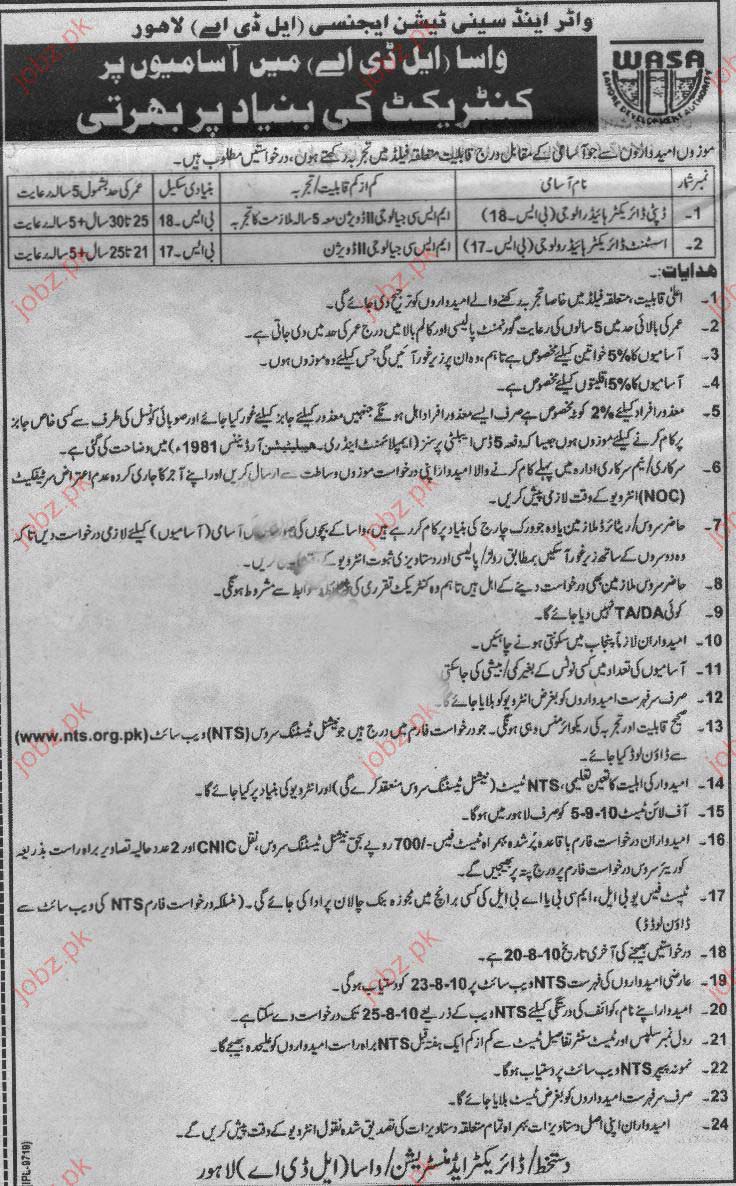 واٹر اینڈ سینی ٹیشن ایجنسی (ایل ڈی اے) لاہور
واسا (ایل ڈی اے) میں آسامیوں پر
کنٹریکٹ کی بنیاد پر بھرتی
WASA
LAHORE DEVELOPMENT AUTHORITY
موزوں امیدواروں سے جو آسامی کے مقابل درج قابلیت متعلقہ فیلڈ میں تجربہ رکھتے ہوں، درخواستیں مطلوب ہیں۔
نمبر شمار نام آسامی کم از کم قابلیت/تجربہ بنیادی سکیل عمر کی حد بشمول 5 سالہ رعایت
1۔ ڈپٹی ڈائریکٹر ہائیڈرالوجی (بی ایس۔18) ایم ایس سی جیالوجی II ڈویژن معہ 5 سالہ ملازمت کا تجربہ بی ایس۔18 25 تا 30 سال + 5 سالہ رعایت
2۔ اسسٹنٹ ڈائریکٹر ہائیڈرولوجی (بی ایس۔17) ایم ایس سی جیالوجی II ڈویژن بی ایس۔17 21 تا 25 سال + 5 سالہ رعایت
ہدایات:۔
1۔ اعلیٰ قابلیت، متعلقہ فیلڈ میں خاصا تجربہ رکھنے والے امیدواروں کو ترجیح دی جائے گی۔
2۔ عمر کی بالائی حد میں 5 سالوں کی رعایت گورنمنٹ پالیسی اور کالم بالا میں درج عمر کی حد میں دی جاتی ہے۔
3۔ آسامیوں کا 5% خواتین کیلئے مخصوص ہے تاہم، وہ ان پر زیر غور آئیں گی جس کیلئے وہ موزوں ہوں۔
4۔ آسامیوں کا 5% اقلیتوں کیلئے مخصوص ہے۔
5۔ معذور افراد کیلئے 2% کوٹہ مخصوص ہے صرف ایسے معذور افراد اہل ہونگے جنہیں معذور کیلئے جابز کیلئے غور کیا جائے اور صوبائی کونسل کی طرف سے کسی خاص جابز
پر کام کرنے کیلئے موزوں ہوں جیسا کہ دفعہ 5 ڈس ایبلٹی پرسنز (ایمپلائمنٹ اینڈ ری۔ ہیبلیٹیشن آرڈیننس 1981ء) میں وضاحت کی گئی ہے۔
6۔ سرکاری/نیم سرکاری ادارہ میں پہلے کام کرنے والا امیدوار اپنی درخواست موزوں وساطت سے ارسال کریں اور اپنے آجر کا جاری کردہ عدم اعتراض سرٹیفکیٹ
(NOC) انٹرویو کے وقت لازمی پیش کریں۔
7۔ حاضر سروس/ریٹائرڈ ملازمین یا وہ جو ورک چارج کی بنیاد پر کام کر رہے ہیں، واسا کے بچوں کی آسامی (آسامیوں) کیلئے لازمی درخواست دیں تاکہ
وہ دوسروں کے ساتھ زیر غور آسکیں بمطابق رولز/پالیسی اور دستاویزی ثبوت انٹرویو کے کریں۔
8۔ حاضر سروس ملازمین بھی درخواست دینے کے اہل ہیں تاہم وہ کنٹریکٹ تقرری کی ضوابط سے مشروط ہونگی۔
9۔ کوئی TA/DA نہیں دیا جائے گا۔
10۔ امیدواران لازماً پنجاب میں سکونتی ہونے چاہئیں۔
11۔ آسامیوں کی تعداد میں کسی نوٹس کے بغیر کمی/بیشی کی جاسکتی
12۔ صرف سرفہرست امیدواروں کو بغرض انٹرویو کو بلایا جائے گا۔
13۔ صحیح قابلیت اور تجربہ کی ریکوائرمنٹس وہی ہونگی۔ جو درخواست فارم میں درج ہیں جو نیشنل ٹیسٹنگ سروس (NTS) ویب سائٹ (www.nts.org.pk)
سے ڈاؤن لوڈ کیا جائے۔
14۔ امیدوار کی اہلیت کا تعین تعلیمی، NTS ٹیسٹ (نیشنل ٹیسٹنگ سروس منعقد کرے گی) اور انٹرویو کی بنیاد پر کیا جائے گا۔
15۔ آف لائن ٹیسٹ 10-9-5 کو صرف لاہور میں ہوگا۔
16۔ امیدواران درخواست فارم باقاعدہ پُر شدہ ہمراہ ٹیسٹ فیس -/700 روپے بحق نیشنل ٹیسٹنگ سروس، نقل CNIC اور 2 عدد حالیہ تصاویر براہ راست بذریعہ
کوریئر سروس درخواست فارم پر درج پتہ پر بھیجیں گے۔
17۔ ٹیسٹ فیس یو بی ایل، ایم سی بی یا اے بی ایل کی کسی برانچ میں مجوزہ بنک چالان پر ادا کی جائے گی۔ (منسلکہ درخواست فارم NTS کی ویب سائٹ سے
ڈاؤن لوڈڈ)
18۔ درخواستیں بھیجنے کی آخری تاریخ 10-8-20 ہے۔
19۔ عارضی امیدواروں کی فہرست NTS ویب سائٹ پر 10-8-23 کو دستیاب ہوگی۔
20۔ امیدوار اپنے نام، کوائف کی درستگی کیلئے NTS ویب کے ذریعے 10-8-25 تک درخواست دے سکتا ہے۔
21۔ رول نمبر سلپس اور ٹیسٹ سنٹر تفاصیل ٹیسٹ سے کم از کم ایک ہفتہ قبل NTS براہ راست امیدواروں کو علیحدہ بھیجے گا۔
22۔ نمونہ پیپر NTS ویب سائٹ پر دستیاب ہوگا۔
23۔ صرف سرفہرست امیدواروں کو بغرض ٹیسٹ بلایا جائے گا۔
24۔ امیدواران اپنی اصل دستاویزات ہمراہ تمام متعلقہ دستاویزات کی تصدیق شدہ نقول انٹرویو کے وقت پیش کریں گے۔
دستخط/ڈائریکٹر ایڈمنسٹریشن/واسا (ایل ڈی اے) لاہور
(IPL-9719)
jobz.pk